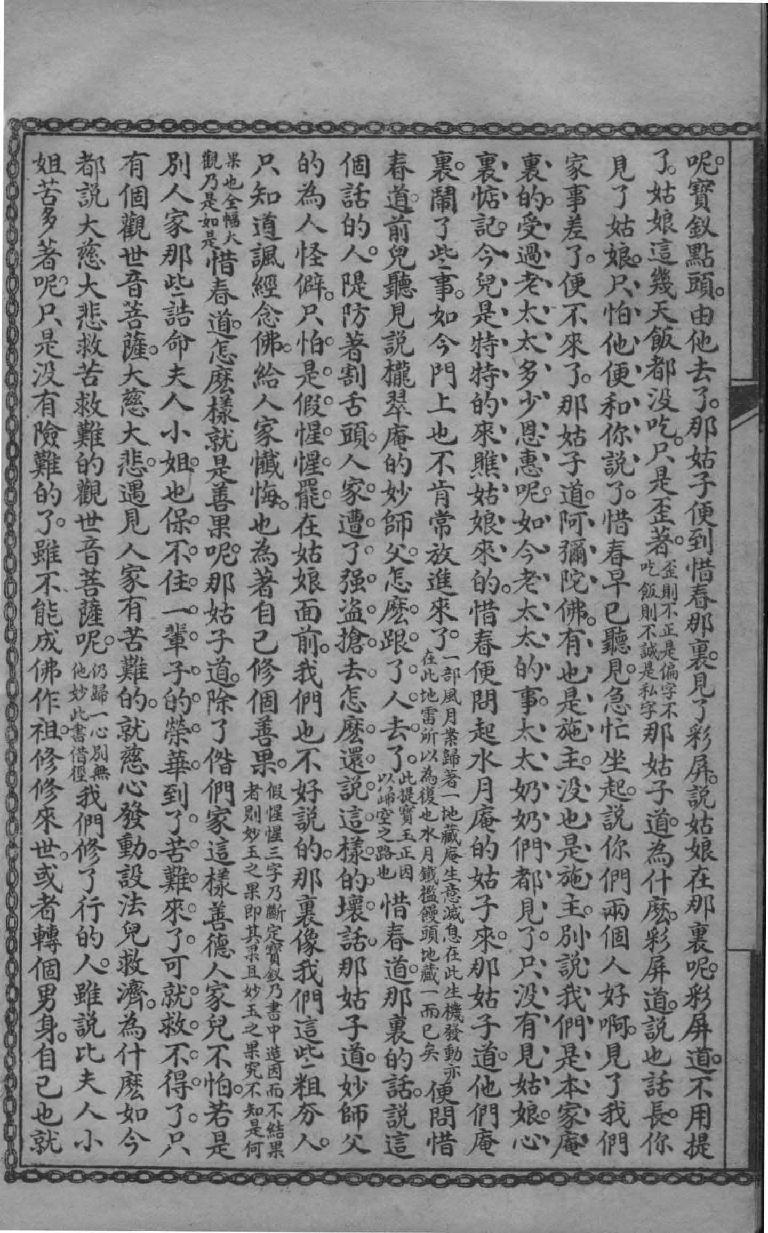 呢。寶釵點頭。由他去了。那姑子便到惜春那裏。見了彩屏。說姑娘在那裏呢。彩屏道。不用提
了。姑娘這幾天飯都沒吃。只是歪著。歪則不正是偏字不吃飯則不誠是私字那姑子道。為什麼。彩屏道。說也話長。你
見了姑娘。只怕他便和你說了。惜春早已聽見。急忙坐起說。你們兩個人好啊。見了我們
家事差了。便不來了。那姑子道。阿彌陀佛。有也是施主。沒也是施主。別說我們是本家庵
裏的。受過老太太多少恩惠呢。如今老太太的事。太太奶奶們都見了。只沒有見姑娘。心
裏惦記。今兒是特特的來瞧姑娘來的。惜春便問起水月庵的姑子來。那姑子道。他們庵
裏鬧了些事。如今門上也不肯常放進來了。一部風月業歸著一地藏庵生意滅息在此生機發動亦在此地雷所以為復也水月鐵檻饅頭地藏一而已矣便問惜
春道。前兒聽見說櫳翠庵的妙師父怎麼跟了人去了。此提寶玉正因以歸空之路也惜春道。那裏的話。說這
個話的人。隄防著割舌頭。人家遭了强盜搶去。怎麼還說這樣的壞話。那姑子道。妙師父
的為人怪僻。只怕是假惺惺罷。在姑娘面前。我們也不好說的。那裏像我們這些粗夯人。
只知道諷經念佛。給人家懺悔。也為著自己修個善果。假惺惺三字乃斷定寶釵乃書中造因而不結果者則妙玉之果即其果且妙玉之果究不知是何
果也全幅大觀乃是如是惜春道。怎麼樣就是善果呢。那姑子道。除了偺們家這樣善德人家兒不怕。若是
別人家那些誥命夫人小姐。也保不住一輩子的榮華。到了苦難來了。可就救不得了。只
有個觀世音菩薩。大慈大悲。遇見人家有苦難的。就慈心發動。設法兒救濟。為什麼如今
都說大慈大悲救苦救難的觀世音菩薩呢。仍歸一心別無他妙此書借徑我們修了行的人。雖說比夫人小
姐苦多著呢。只是沒有險難的了。雖不能成佛作祖。修修來世。或者轉個男身。自己也就